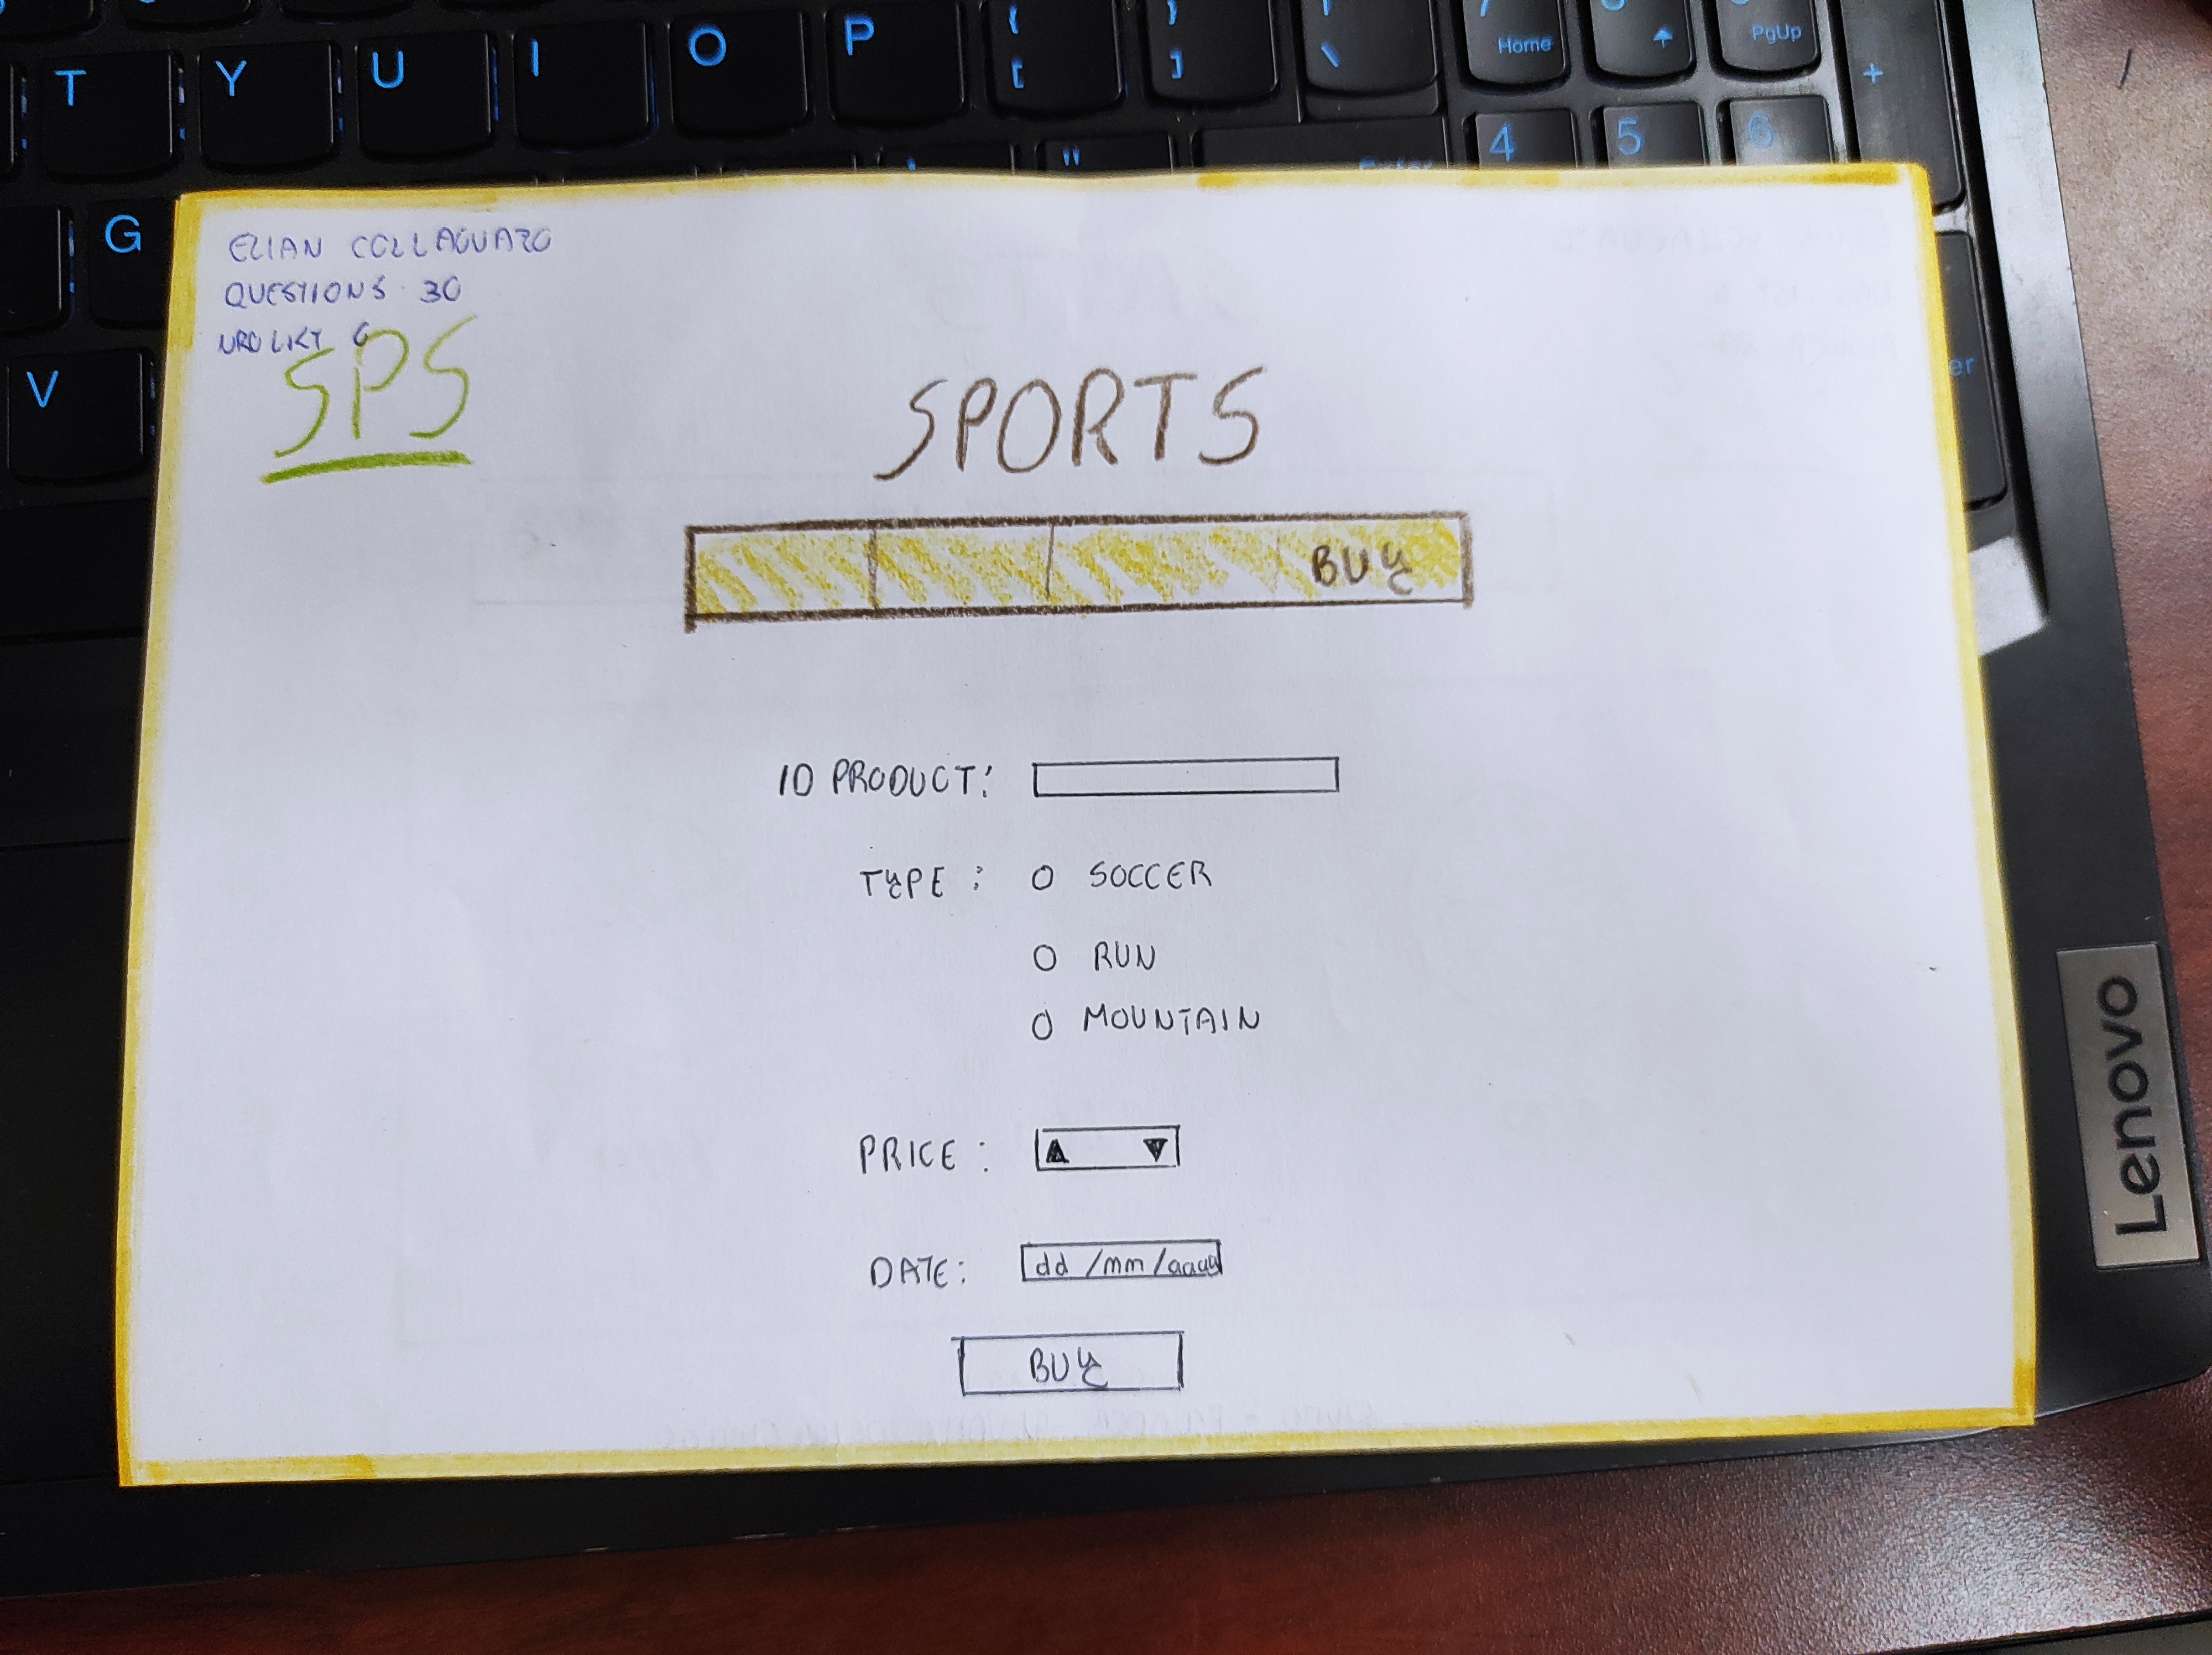 T Y U I O P { [ } ] | \ 7 Home 8 9 PgUp +
" Enter 4 5 6
G
V
ELIAN COLLAGUAZO
QUESTIONS 30
NRO LIST 6
SPS
SPORTS
BUY
ID PRODUCT:
TYPE : O SOCCER
O RUN
O MOUNTAIN
PRICE : ▲ ▼
DATE: dd /mm /aaaa
BUY
Lenovo